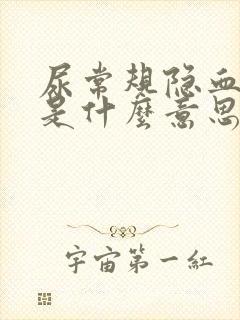 尿常规隐血
是什麼意思
宇宙第一紅